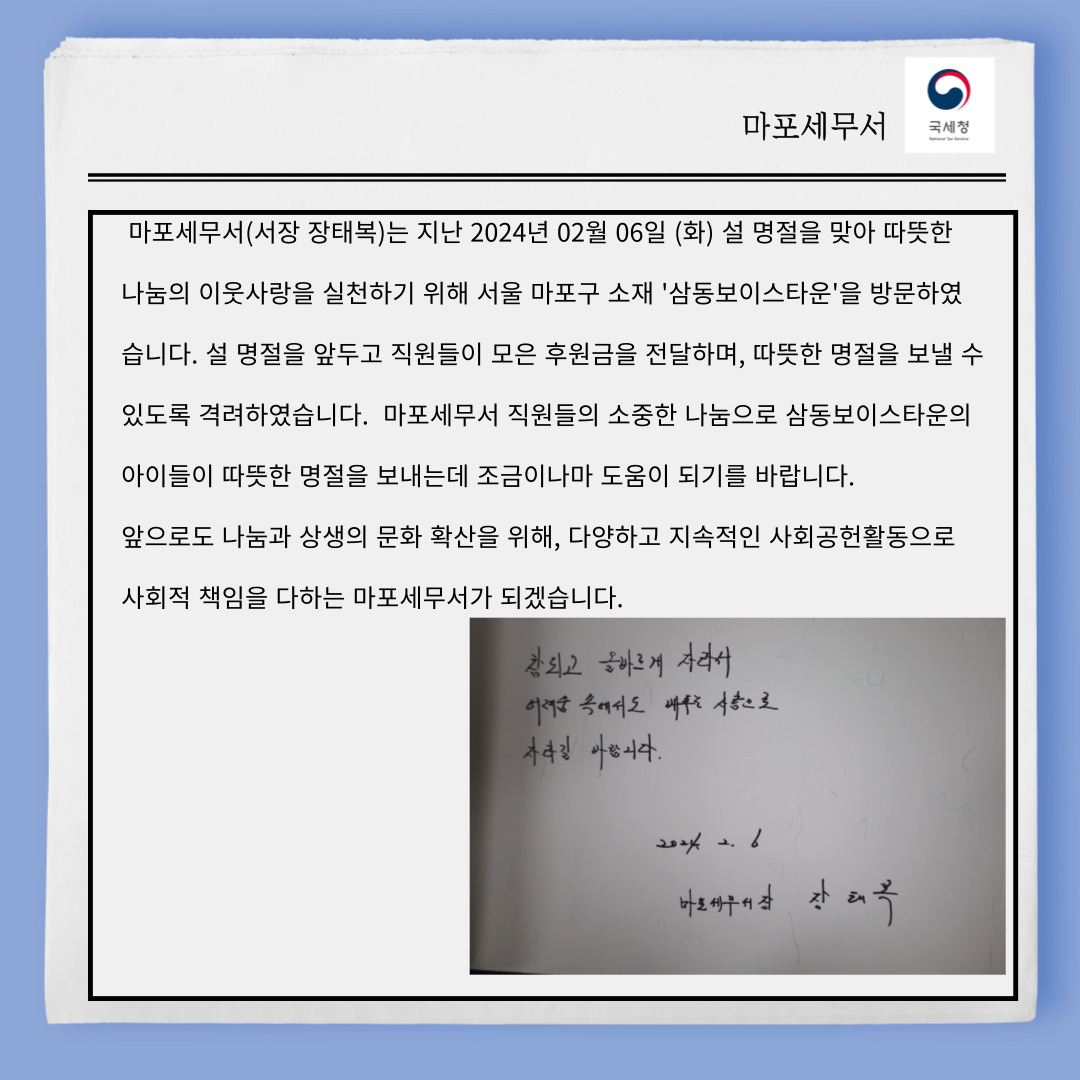 마포세무서
국세청
National Tax Service
마포세무서(서장 장태복)는 지난 2024년 02월 06일 (화) 설 명절을 맞아 따뜻한
나눔의 이웃사랑을 실천하기 위해 서울 마포구 소재 '삼동보이스타운'을 방문하였
습니다. 설 명절을 앞두고 직원들이 모은 후원금을 전달하며, 따뜻한 명절을 보낼 수
있도록 격려하였습니다. 마포세무서 직원들의 소중한 나눔으로 삼동보이스타운의
아이들이 따뜻한 명절을 보내는데 조금이나마 도움이 되기를 바랍니다.
앞으로도 나눔과 상생의 문화 확산을 위해, 다양하고 지속적인 사회공헌활동으로
사회적 책임을 다하는 마포세무서가 되겠습니다.
참되고 올바르게 자라서
어려움 속에서도 배우는
자라길 바랍니다.
2024. 2. 6
마포세무서장 장태복